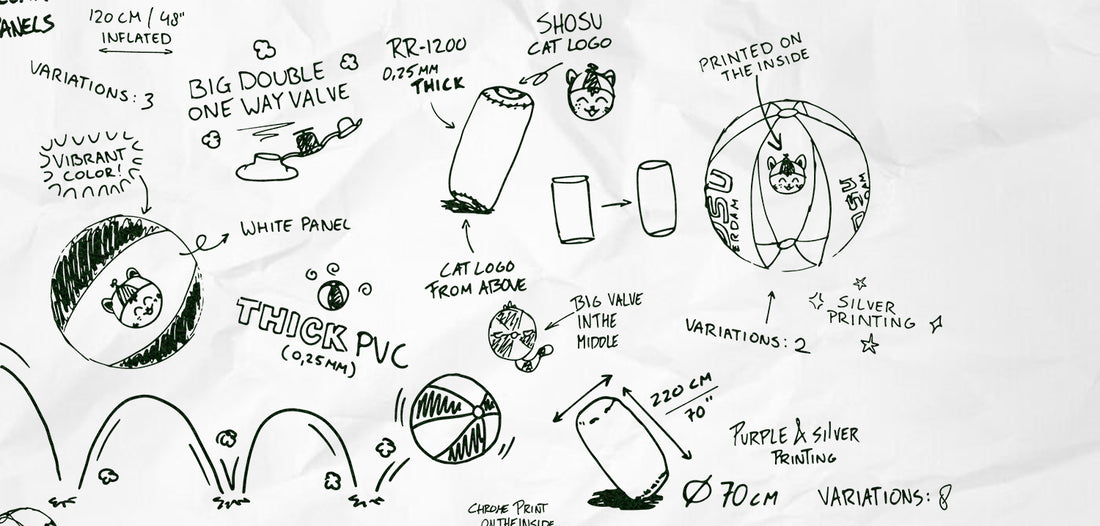 PANELS
120 CM / 48"
INFLATED
VARIATIONS: 3
VIBRANT
COLOR!
WHITE PANEL
BIG DOUBLE
ONE WAY VALVE
THICK PVC
(0,25MM)
RR-1200
0,25MM
THICK
SHOSU
CAT LOGO
CAT LOGO
FROM ABOVE
BIG VALVE
IN THE
MIDDLE
PRINTED ON
THE INSIDE
VARIATIONS: 2
SILVER
PRINTING
220 CM
70"
PURPLE & SILVER
PRINTING
Ø 70 CM
VARIATIONS: 8
CHROME PRINT
ON THE INSIDE